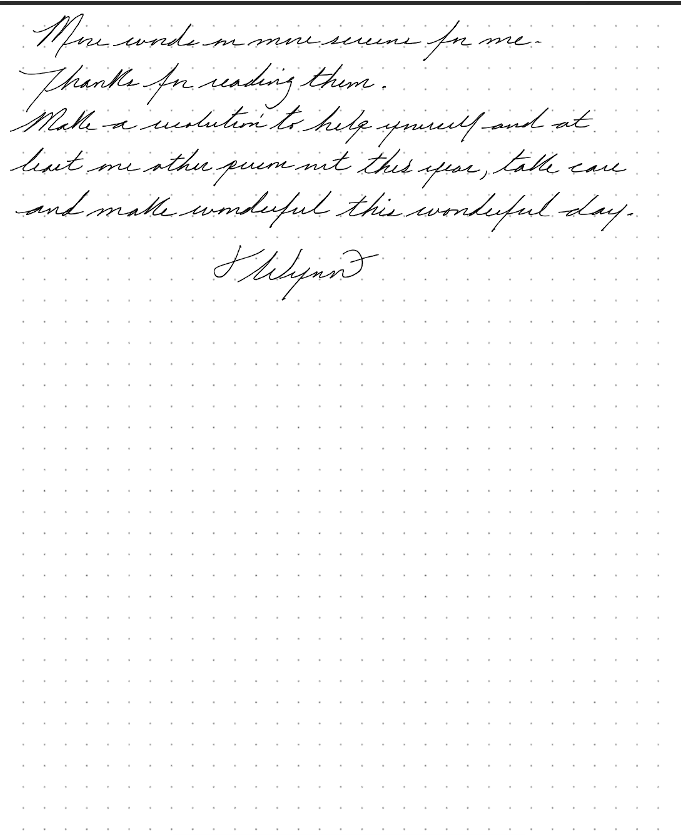 More words on more screens for me.
Thanks for reading them.
Make a resolution to help yourself and at
least one other person out this year, take care
and make wonderful this wonderful day.
Wynn